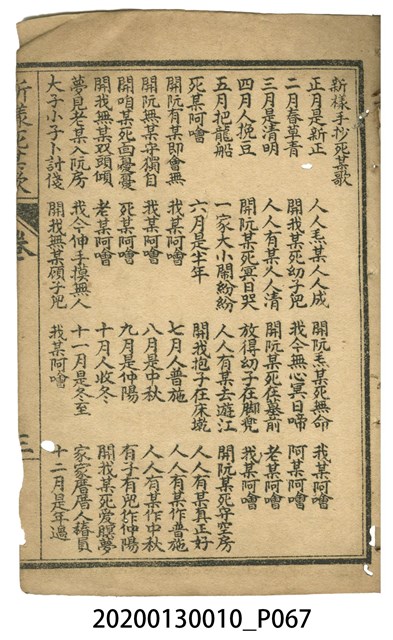 新樣手抄死某歌
正月是新正 人人悉某人人成 開阮悉某死無命 我某阿噲
二月春草青 開我某死幼子兜 我今無心冥日啼 阿某阿噲
三月是清明 人人有某人人清 開阮某死在墓前 老某阿噲
四月人挽豆 開阮某死冥日哭 放得幼子在脚兜 我某阿噲
五月把龍船 一家大小鬧紛紛 人人有某去遊江 開阮某死守空房
死某阿噲 六月是半年 開我抱子在床墘 人人有某真正好
開阮有某即會無 我某阿噲 七月人普施 人人有某作普施
開阮無某守獨自 我某阿噲 八月是中秋 人人有某作中秋
開咱某死面憂憂 死某阿噲 九月是仲陽 有子有兜作仲陽
開我無某双頭傾 老某阿噲 十月人收冬 開我某死爱眠夢
夢見老某人阮房 我今伸手摸無人 十一月是冬至 家家厝厝人穡員
大子小子卜討俴 開我無某顧子兜 我某阿噲 十二月是年過
新樣死某歌 卷 三
20200130010_P067